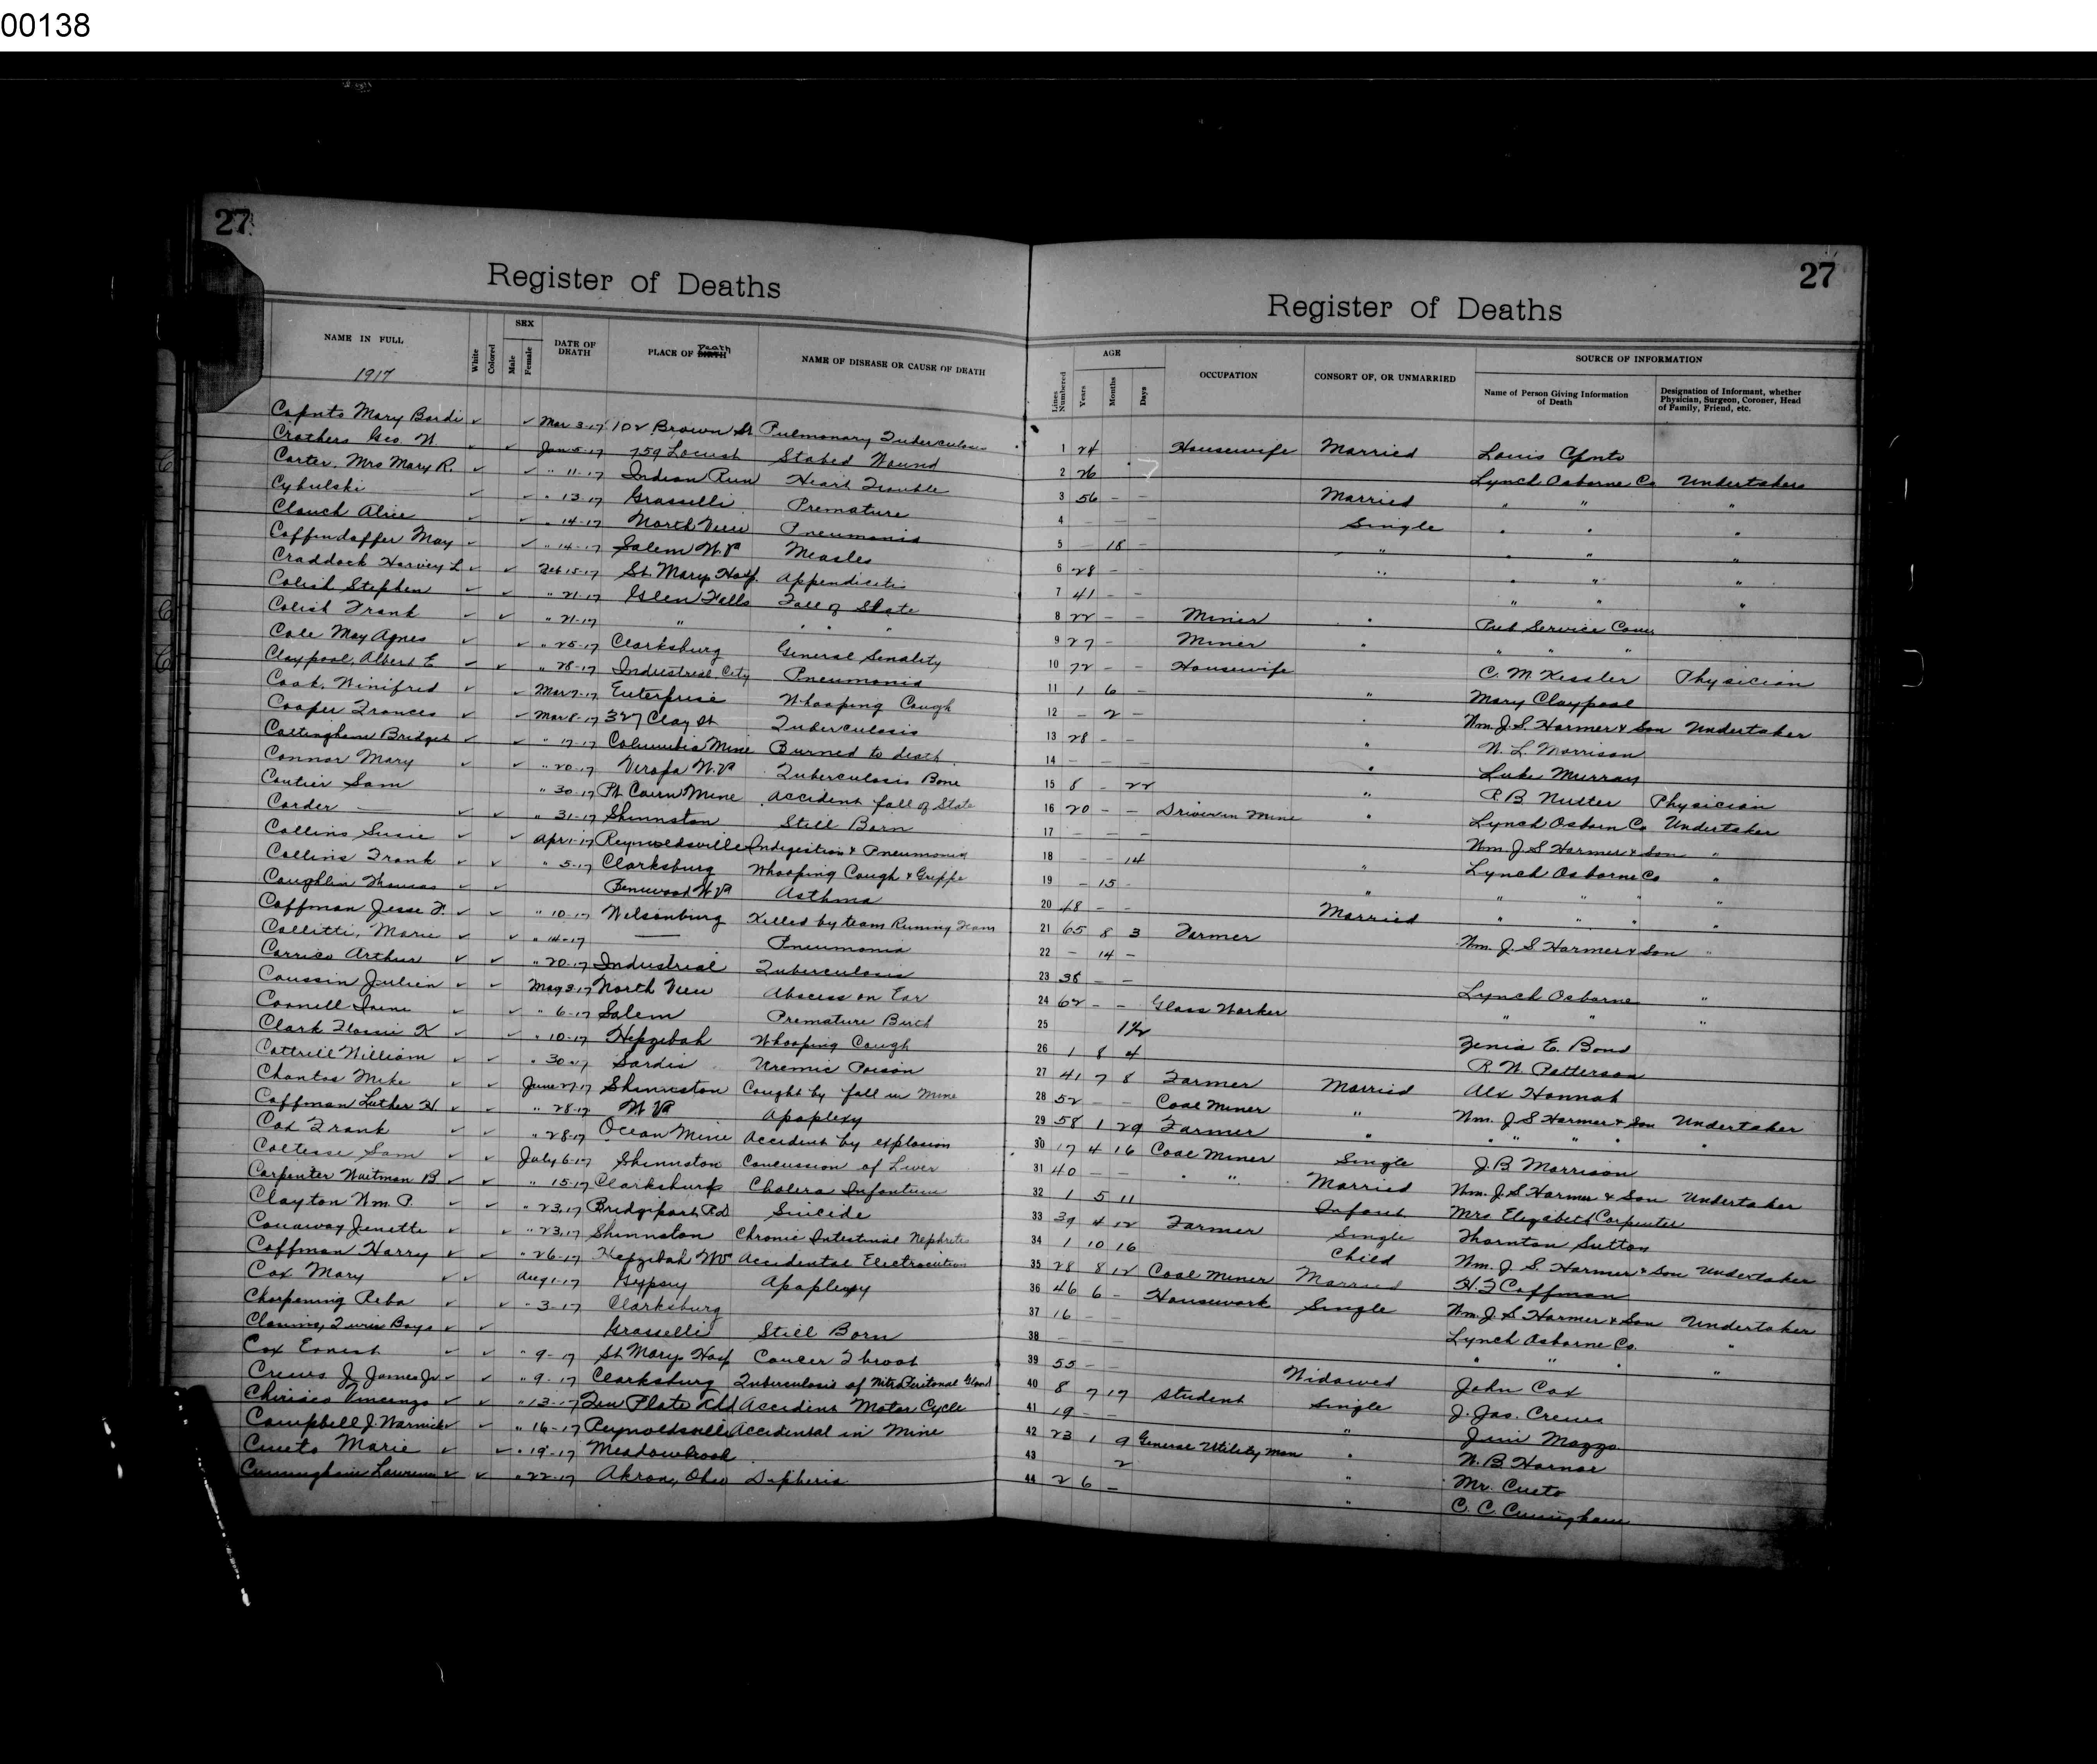 00138
27
Register of Deaths
NAME IN FULL
1917
White
Colored
SEX
Male
Female
DATE OF DEATH
PLACE OF BIRTH Death
NAME OF DISEASE OR CAUSE OF DEATH
Mary ✓ ✓ Mar 3-17 102 Brown St Pulmonary Tuberculosis
Crothers Geo. W ✓ ✓ Jan 5-17 759 Locust Stabed Wound
Carter, Mrs Mary R. ✓ ✓ " 11-17 Indian Run Heart Trouble
Cybulski ✓ ✓ " 13-17 Grasselli Premature
Clouch Alice ✓ ✓ " 14-17 North View Pneumonia
Coffindaffer May ✓ ✓ " 14-17 Salem W.Va Measles
Craddock Harvey L ✓ ✓ Feb 15-17 St. Marys Hosp. Appendicitis
Colish Stephen ✓ ✓ " 21-17 Glen Falls Fall of Slate
Colish Frank ✓ ✓ " 21-17 " " " "
Cole May Agnes ✓ ✓ " 25-17 Clarksburg General Senality
Claypool, Albert E ✓ ✓ " 28-17 Industrial City Pneumonia
Cook, Winifred ✓ ✓ Mar 7-17 Enterprise Whooping Cough
Cooper Frances ✓ ✓ Mar 8-17 327 Clay St Tuberculosis
Bridget ✓ ✓ " 17-17 Columbia Mine Burned to death
Connor Mary ✓ ✓ " 20-17 W.Va Tuberculosis Bone
Sam " 30-17 Pt Mine Accident fall of Slate
Corder — ✓ ✓ " 31-17 Shinnston Still Born
Collins Susie ✓ ✓ Apr 1-17 Reynoldsville Indigestion & Pneumonia
Collins Frank ✓ ✓ " 5-17 Clarksburg Whooping Cough & Grippe
Coughlin Thomas ✓ ✓ Benwood W.Va Asthma
Coffman Jesse F. ✓ ✓ " 10-17 Wilsonburg Killed by team Runing
Collitti, Marie ✓ ✓ " 14-17 — Pneumonia
Carrico Arthur ✓ ✓ " 20-17 Industrial Tuberculosis
Coussin Julien ✓ ✓ May 3-17 North View Abscess on Ear
Connell ✓ ✓ " 6-17 Salem Premature Birth
Clark K ✓ ✓ " 10-17 Hepzibah Whooping Cough
Cottrill William ✓ ✓ " 30-17 Sardis Uremic Poison
Chontos Mike ✓ ✓ June 27-17 Shinnston Caught by fall in Mine
Coffman Luther H. ✓ ✓ " 28-17 W Va Apoplexy
Cox Frank ✓ ✓ " 28-17 Ocean Mine Accident by explosion
Sam ✓ ✓ July 6-17 Shinnston Concussion of Liver
Carpenter Waitman B ✓ ✓ " 15-17 Clarksburg Cholera Infantum
Clayton Wm. P. ✓ ✓ " 23-17 Bridgeport Rd Suicide
Conaway Jenette ✓ ✓ " 23-17 Shinnston Chronic Intestinal Nephritis
Coffman Harry ✓ ✓ " 26-17 Hepzibah Accidental Electrocution
Cox Mary ✓✓ Aug 1-17 Gypsy Apoplexy
Reba ✓ ✓ " 3-17 Clarksburg
Boys ✓ ✓ Grasselli Still Born
Cox Ernest ✓ ✓ " 9-17 St Marys Hosp Cancer Throat
Crews J. James Jr ✓ ✓ " 9-17 Clarksburg Tuberculosis of
Vincenzo ✓ ✓ " 13-17 Tin Plate Accident Motor Cycle
Campbell J. Warnick ✓ ✓ " 16-17 Reynoldsville Accidental in Mine
Cueto Marie ✓ ✓ " 19-17 Meadowbrook
Cunningham Lawrence ✓ ✓ " 22-17 Akron, Ohio Diptheria
27
Register of Deaths
Lines Numbered
AGE
Years
Months
Days
OCCUPATION
CONSORT OF, OR UNMARRIED
SOURCE OF INFORMATION
Name of Person Giving Information of Death
Designation of Informant, whether Physician, Surgeon, Coroner, Head of Family, Friend, etc.
1 24 Housewife Married Louis
2 26 Lynch Osborne Co Undertakers
3 56 - - Married " " "
4 - - Single " " "
5 - 18 - " " " "
6 28 - - " " " "
7 41 - - " " "
8 22 - - Miner " Pub Service
9 27 - Miner " " " "
10 72 - - Housewife C. M. Kessler Physician
11 1 6 - " Mary Claypool
12 - 2 - " Wm. J. S. Harmer & Son Undertaker
13 28 - - " W. L. Morrison
14 - - - " Luke Murray
15 8 - 22 " P. B. Nutter Physician
16 20 - - Driver in Mine " Lynch Osborn Co Undertaker
17 - - - Wm. J. S. Harmer & Son "
18 - - 14 " Lynch Osborne Co "
19 - 15 - " " " " "
20 48 - - Married " " " "
21 65 8 3 Farmer Wm. J. S. Harmer & Son "
22 - 14 -
23 38 - - Lynch Osborne "
24 62 - - Glass Worker " " "
25 Zenia E. Bond
26 1 8 4 R. W. Patterson
27 41 7 8 Farmer Married Alex Hannah
28 52 - - Coal Miner " Wm. J. S Harmer & Son Undertaker
29 58 1 29 Farmer " " " " " "
30 17 4 16 Coal Miner Single J. B. Morrison
31 40 - - " " Married Wm. J. S Harmer & Son Undertaker
32 1 5 11 Infant Mrs Elizabeth Carpenter
33 39 4 12 Farmer Single Thornton Sutton
34 1 10 16 Child Wm. J. S. Harmer & Son Undertaker
35 28 8 12 Coal Miner Married H. F Coffman
36 46 6 - Housework Single Wm. J S Harmer & Son Undertaker
37 16 - - Lynch Osborne Co. "
38 - - " " " "
39 55 - - Widowed John Cox
40 8 7 17 Student Single J. Jas. Crews
41 19 - - " Jim
42 23 1 9 General Utility Man " W. B. Harnor
43 2 " Mr. Cueto
44 2 6 - " C. C. Cunningham